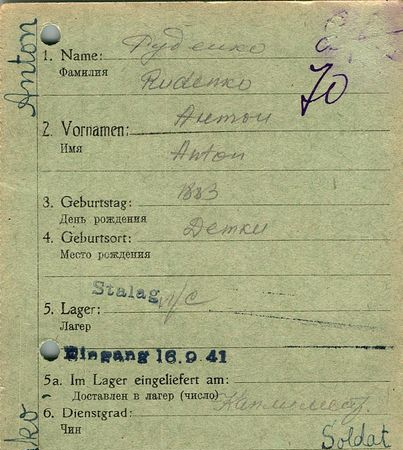 Anton
1. Name: Руденко
Фамилия Rudenko
70
2. Vornamen: Антон
Имя Anton
3. Geburtstag: 1883
День рождения
4. Geburtsort: Детки
Место рождения
Stalag
5. Lager:
Лагер
Eingang 16.9.41
5a. Im Lager eingeliefert am:
Доставлен в лагер (число)
6. Dienstgrad:
Чин
Soldat